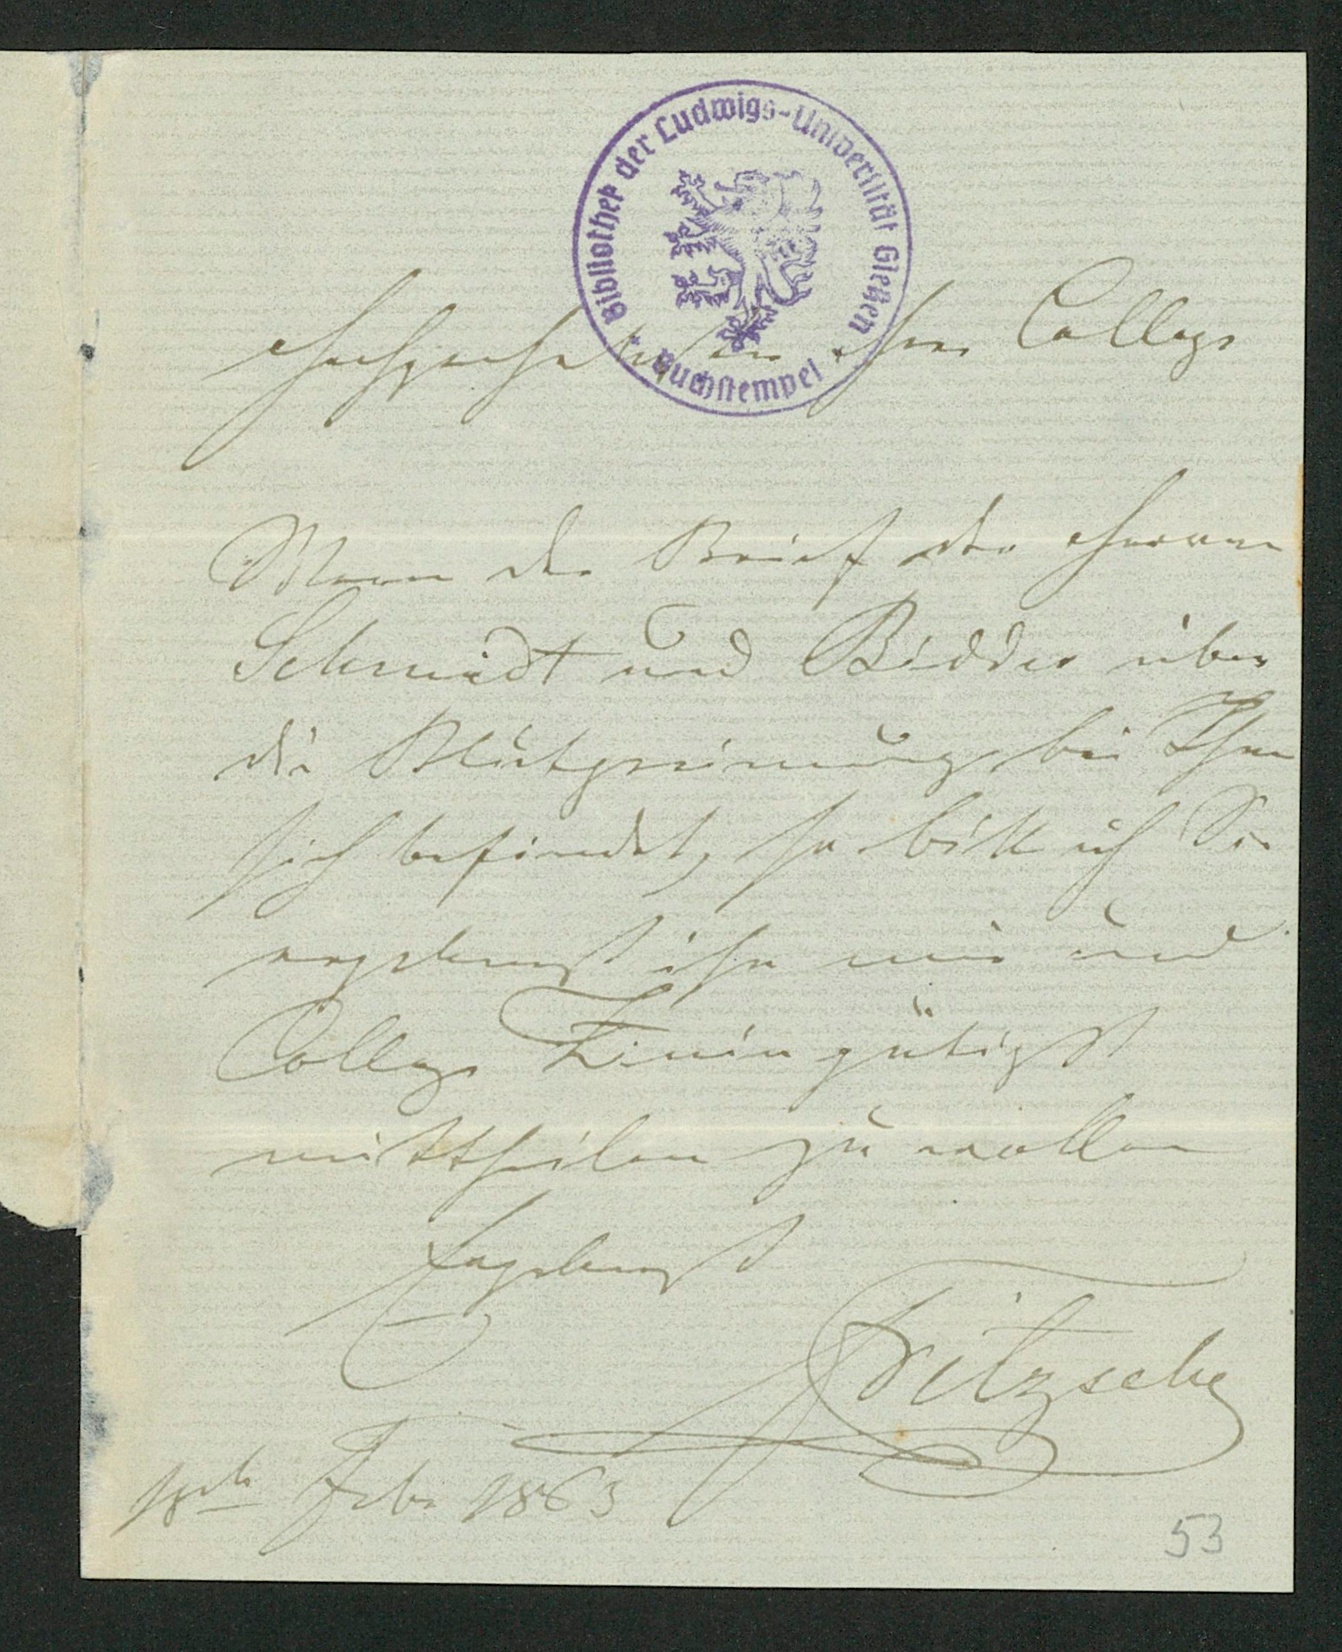 Bibliothek der Ludwigs-Universität Gießen
Buchstempel
Hochgeehrtester Herr College
Wenn der Brief der Herren
Schmidt und Bidder über
die Blutgerinnung bei Ihnen
sich befindet, so bitte ich Sie
ergebenst ihn mir und
College Zinin gütigst
mittheilen zu wollen
Ergebenst
Fritzsche
Febr 1863
53